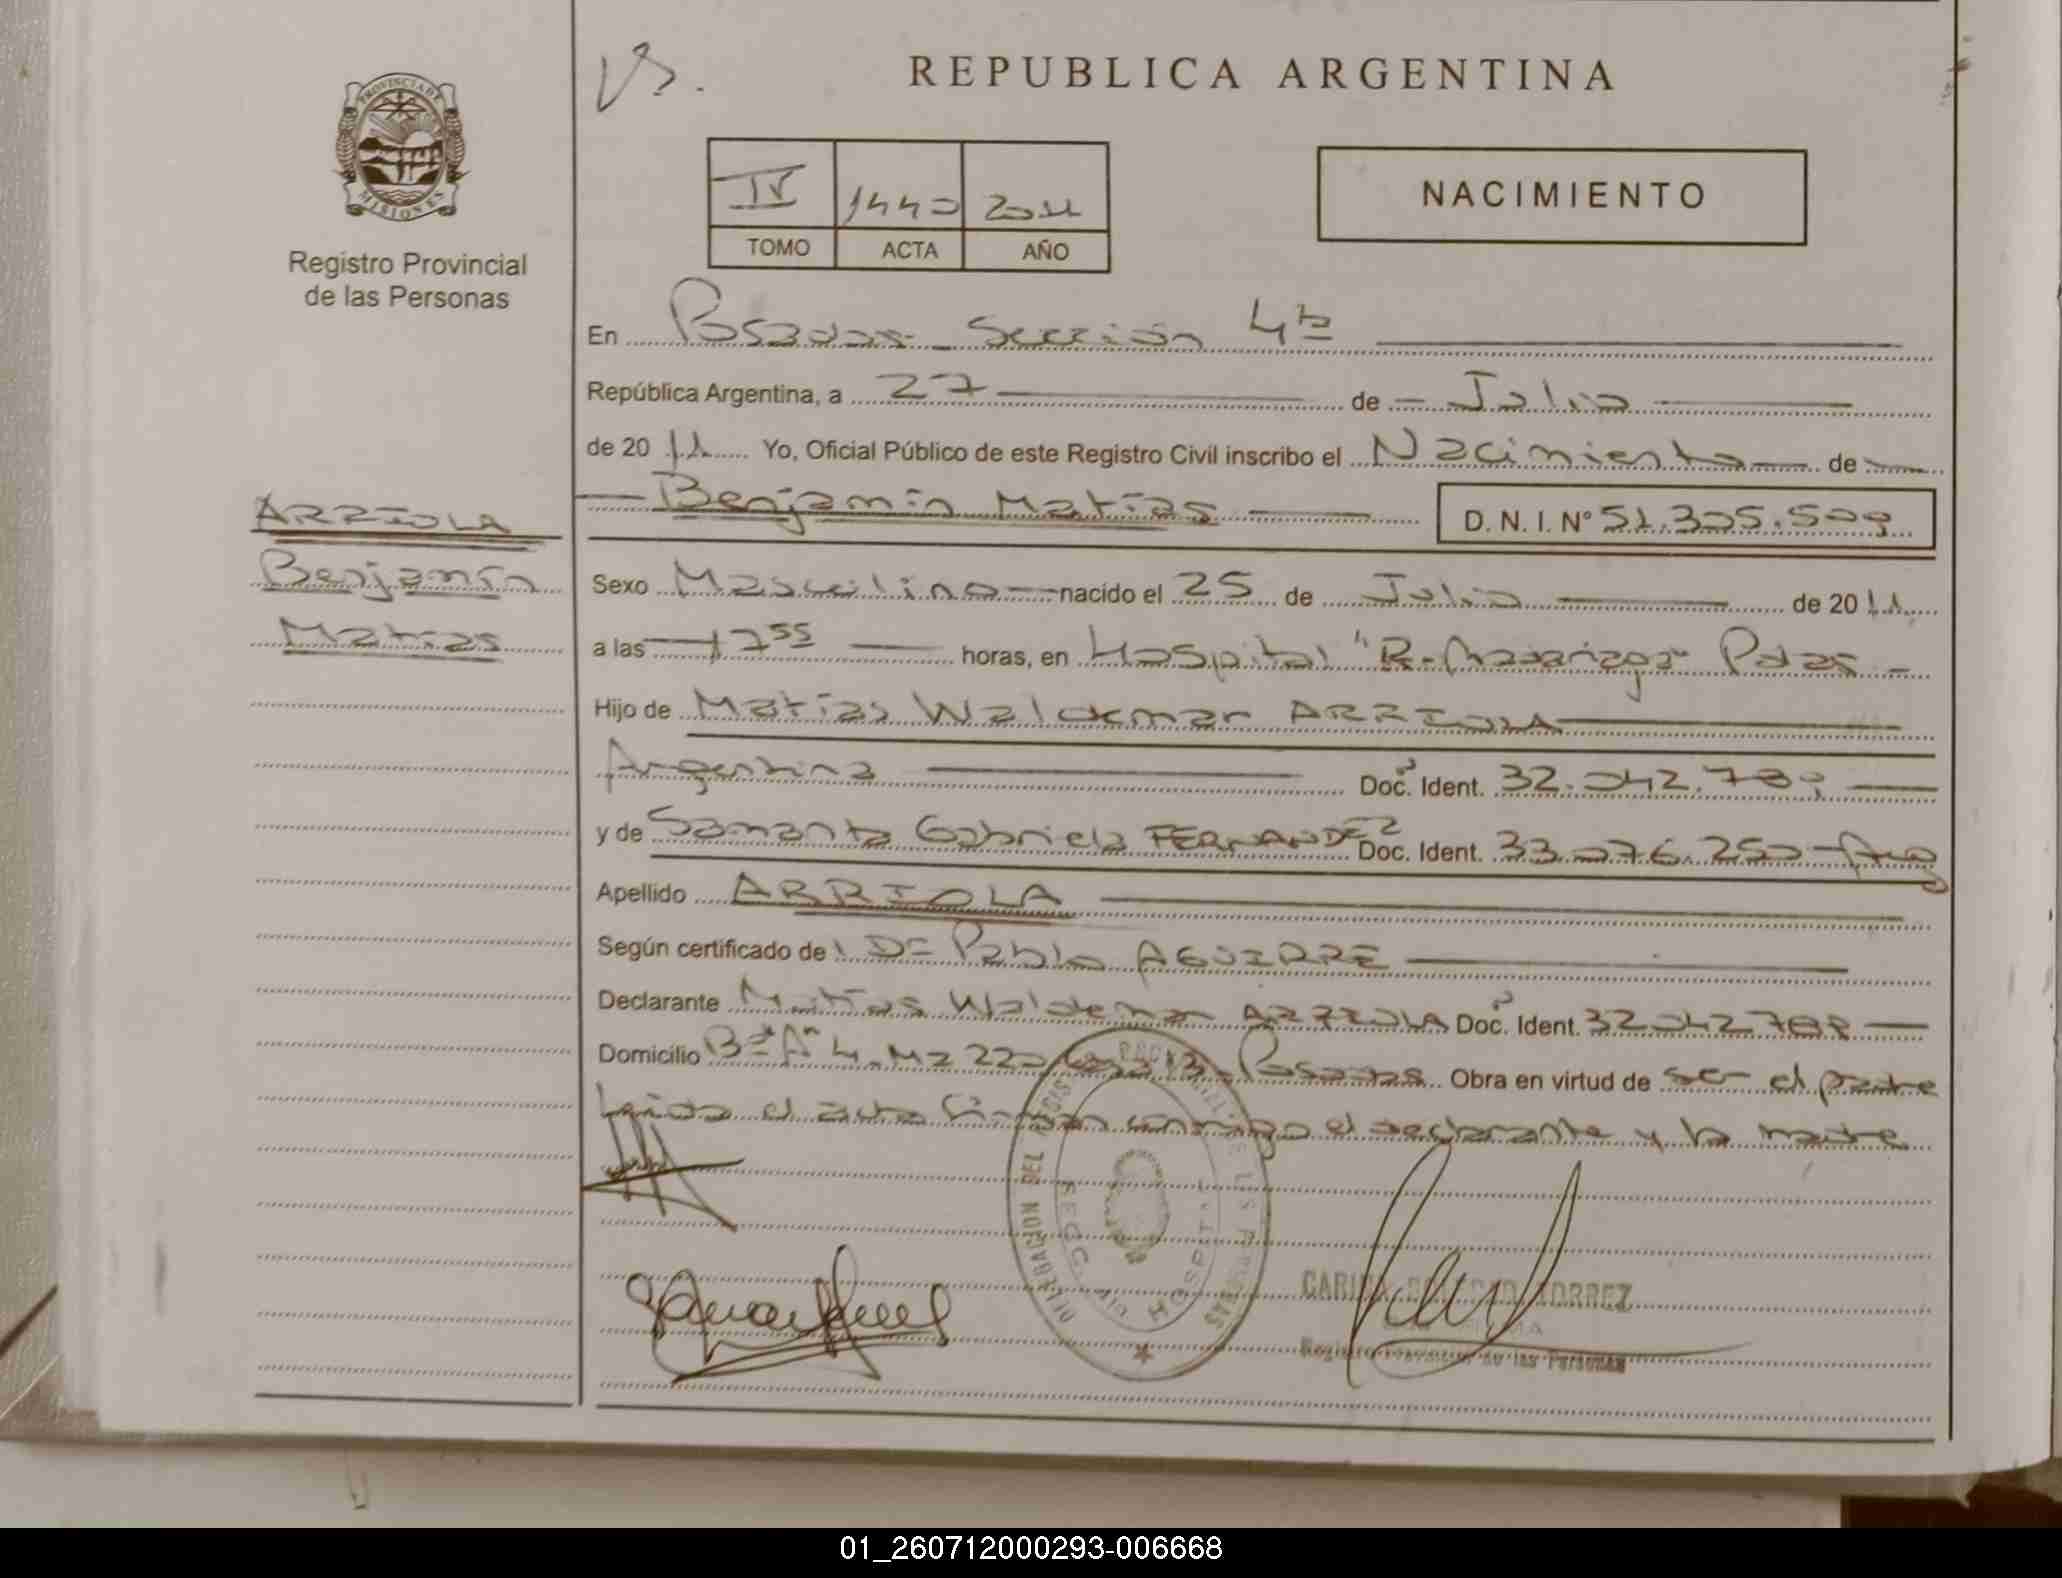 PROVINCIA DE
MISIONES
Registro Provincial
de las Personas
REPUBLICA ARGENTINA
IV 1440 2011
TOMO ACTA AÑO
NACIMIENTO
En Posadas - Sección 4ta
República Argentina, a 27 de Julio
de 20 11 Yo, Oficial Público de este Registro Civil inscribo el Nacimiento de
Benjamín Matías
D. N. I. Nº 51.305.509
ARRIOLA
Benjamín
Matías
Sexo Masculino nacido el 25 de Julio de 20 11
a las 17 55 horas, en Hospital "R. Madariaga" Pdas
Hijo de Matías Waldemar ARRIOLA
Argentina Doc. Ident. 32.042.789
y de Samanta Gabriela FERNANDEZ Doc. Ident. 33.076.250 Arg
Apellido ARRIOLA
Según certificado de Dr Pablo AGUIRRE
Declarante Matías Waldemar ARRIOLA Doc. Ident. 32.042.789
Domicilio Bº An 4 Mz 220 Casa 13 Posadas Obra en virtud de ser el padre
Leída el acta firman conmigo el declarante y la madre
DELEGACION DEL REGISTRO PROVINCIAL DE LAS PERSONAS
SECC. 4ta HOSPITAL
CARINA SOLEDAD TORREZ
Registro Provincial de las Personas
01_260712000293-006668